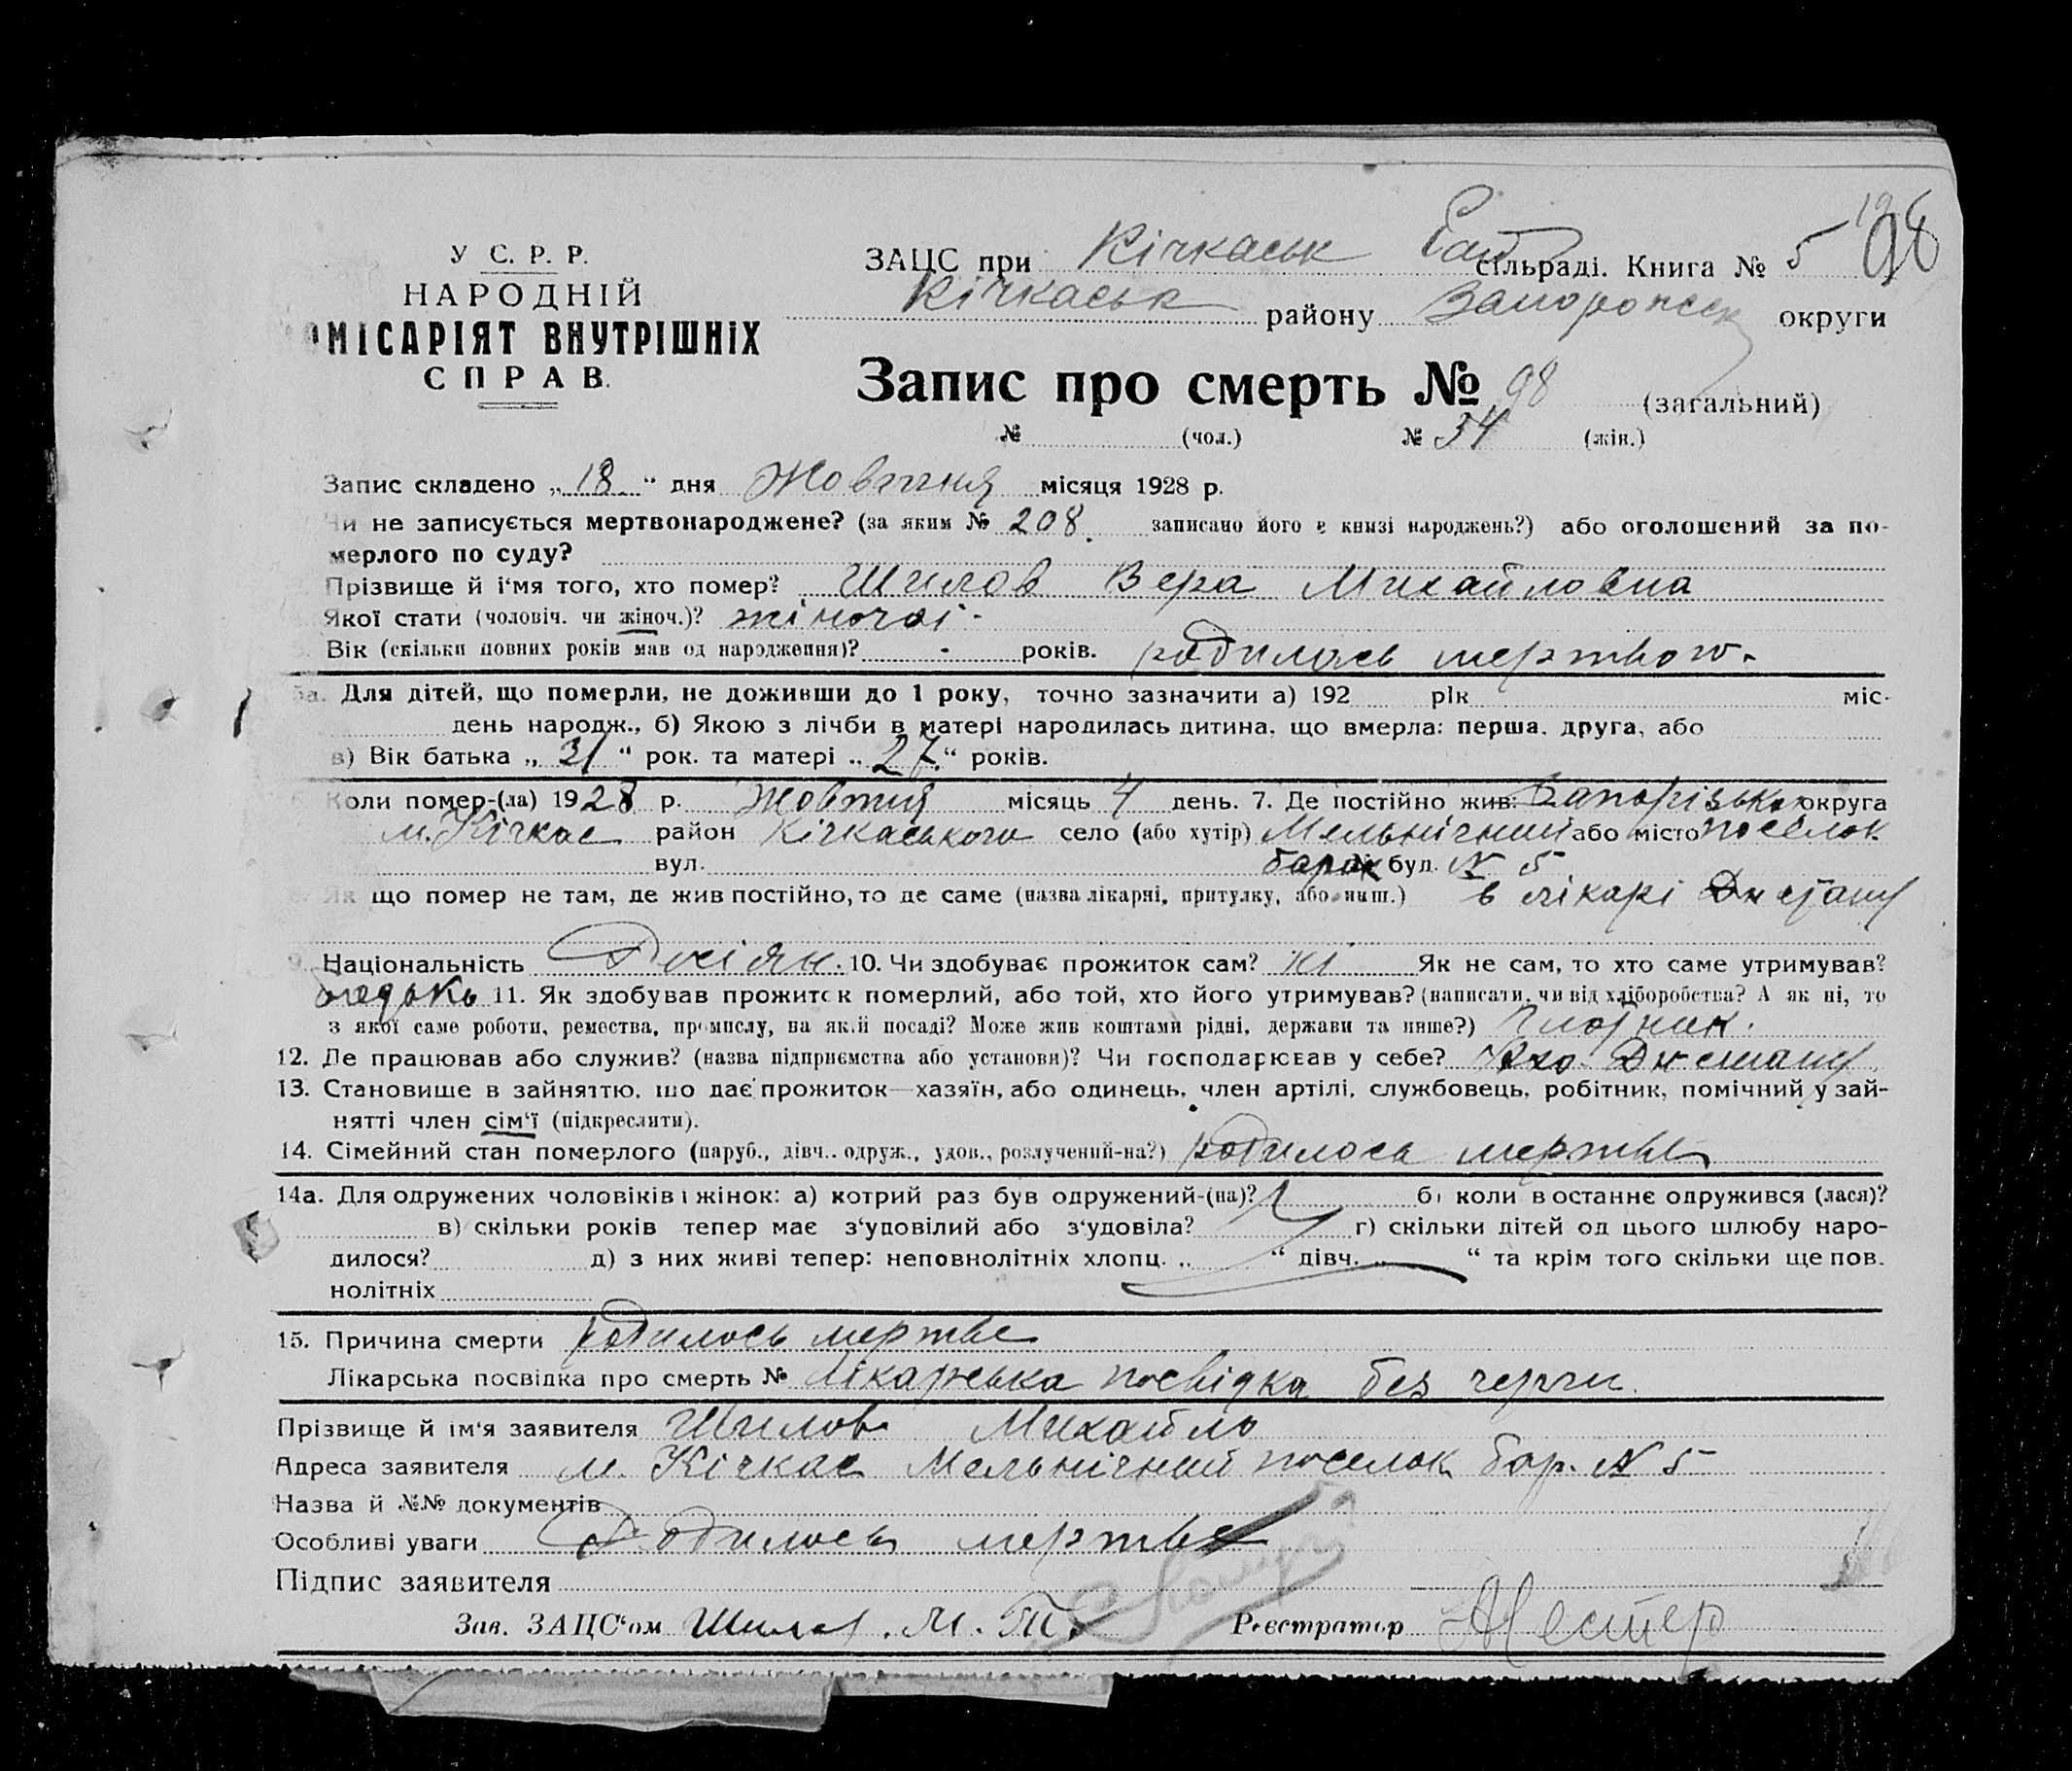 У С. Р. Р.
НАРОДНІЙ
ОМІСАРІЯТ ВНУТРІШНІХ
СПРАВ.
ЗАЦС при Кічкаськ сільраді. Книга № 5 98
Кічкаськ району Запорожск округи
Запис про смерть № 98 (загальний)
№ (чол.) № 34 (жін.)
Запис складено „ 18 “ дня Жовтня місяця 1928 р.
Чи не записується мертвонароджене? (за яким № 208. записано його в книзі народжень?) або оголошений за по-
мерлого по суду?
Прізвище й і‘мя того, хто помер? Шилов Вера Михайловна
Якої стати (чоловіч. чи жіноч.)? жіночої -
Вік (скільки повних років мав од народження)? - років. родилась мертвою.
5а. Для дітей, що померли, не доживши до 1 року, точно зазначити а) 192 рік міс-
день народж., б) Якою з лічби в матері народилась дитина, що вмерла: перша, друга, або
в) Вік батька „ 31 “ рок. та матері „ 27. “ років.
Коли помер-(ла) 1928 р. Жовтня місяць 4 день. 7. Де постійно жив: Запорізька округа
м. Кічкас район Кічкаського село (або хутір) Мельнічний або місто посёлок
вул. барак буд. № 5
Як що помер не там, де жив постійно, то де саме (назва лікарні, притулку, або инш.) в лікарі
Національність Росіян. 10. Чи здобуває прожиток сам? ні Як не сам, то хто саме утримував?
батько 11. Як здобував прожиток померлий, або той, хто його утримував? (написати, чи від хліборобства? А як ні, то
з якої саме роботи, ремества, промислу, на якій посаді? Може жив коштами рідні, держави та инше?) Плотник.
12. Де працював або служив? (назва підприємства або установи)? Чи господарював у себе?
13. Становище в зайняттю, що дає прожиток—хазяїн, або одинець, член артілі, службовець, робітник, помічний у зай-
нятті член сім‘ї (підкреслити).
14. Сімейний стан померлого (паруб., дівч., одруж., удов., розлучений-на?) родилося мертве
14а. Для одружених чоловіків і жінок: а) котрий раз був одружений-(на)? б) коли в останнє одружився (лася)?
в) скільки років тепер має з‘удовілий або з‘удовіла? г) скільки дітей од цього шлюбу наро-
дилося? д) з них живі тепер: неповнолітніх хлопц. „ “ дівч. „ “ та крім того скільки ще пов.
нолітніх
15. Причина смерти родилось мертве
Лікарська посвідка про смерть № Лікарська посвідка без
Прізвище й ім‘я заявителя Шилов Михайло
Адреса заявителя м. Кічкас Мельнічний поселок бар. № 5
Назва й №№ документів
Особливі уваги Родилось мертве
Підпис заявителя
Зав. ЗАЦС‘ом Шилов. М. Реєстратор